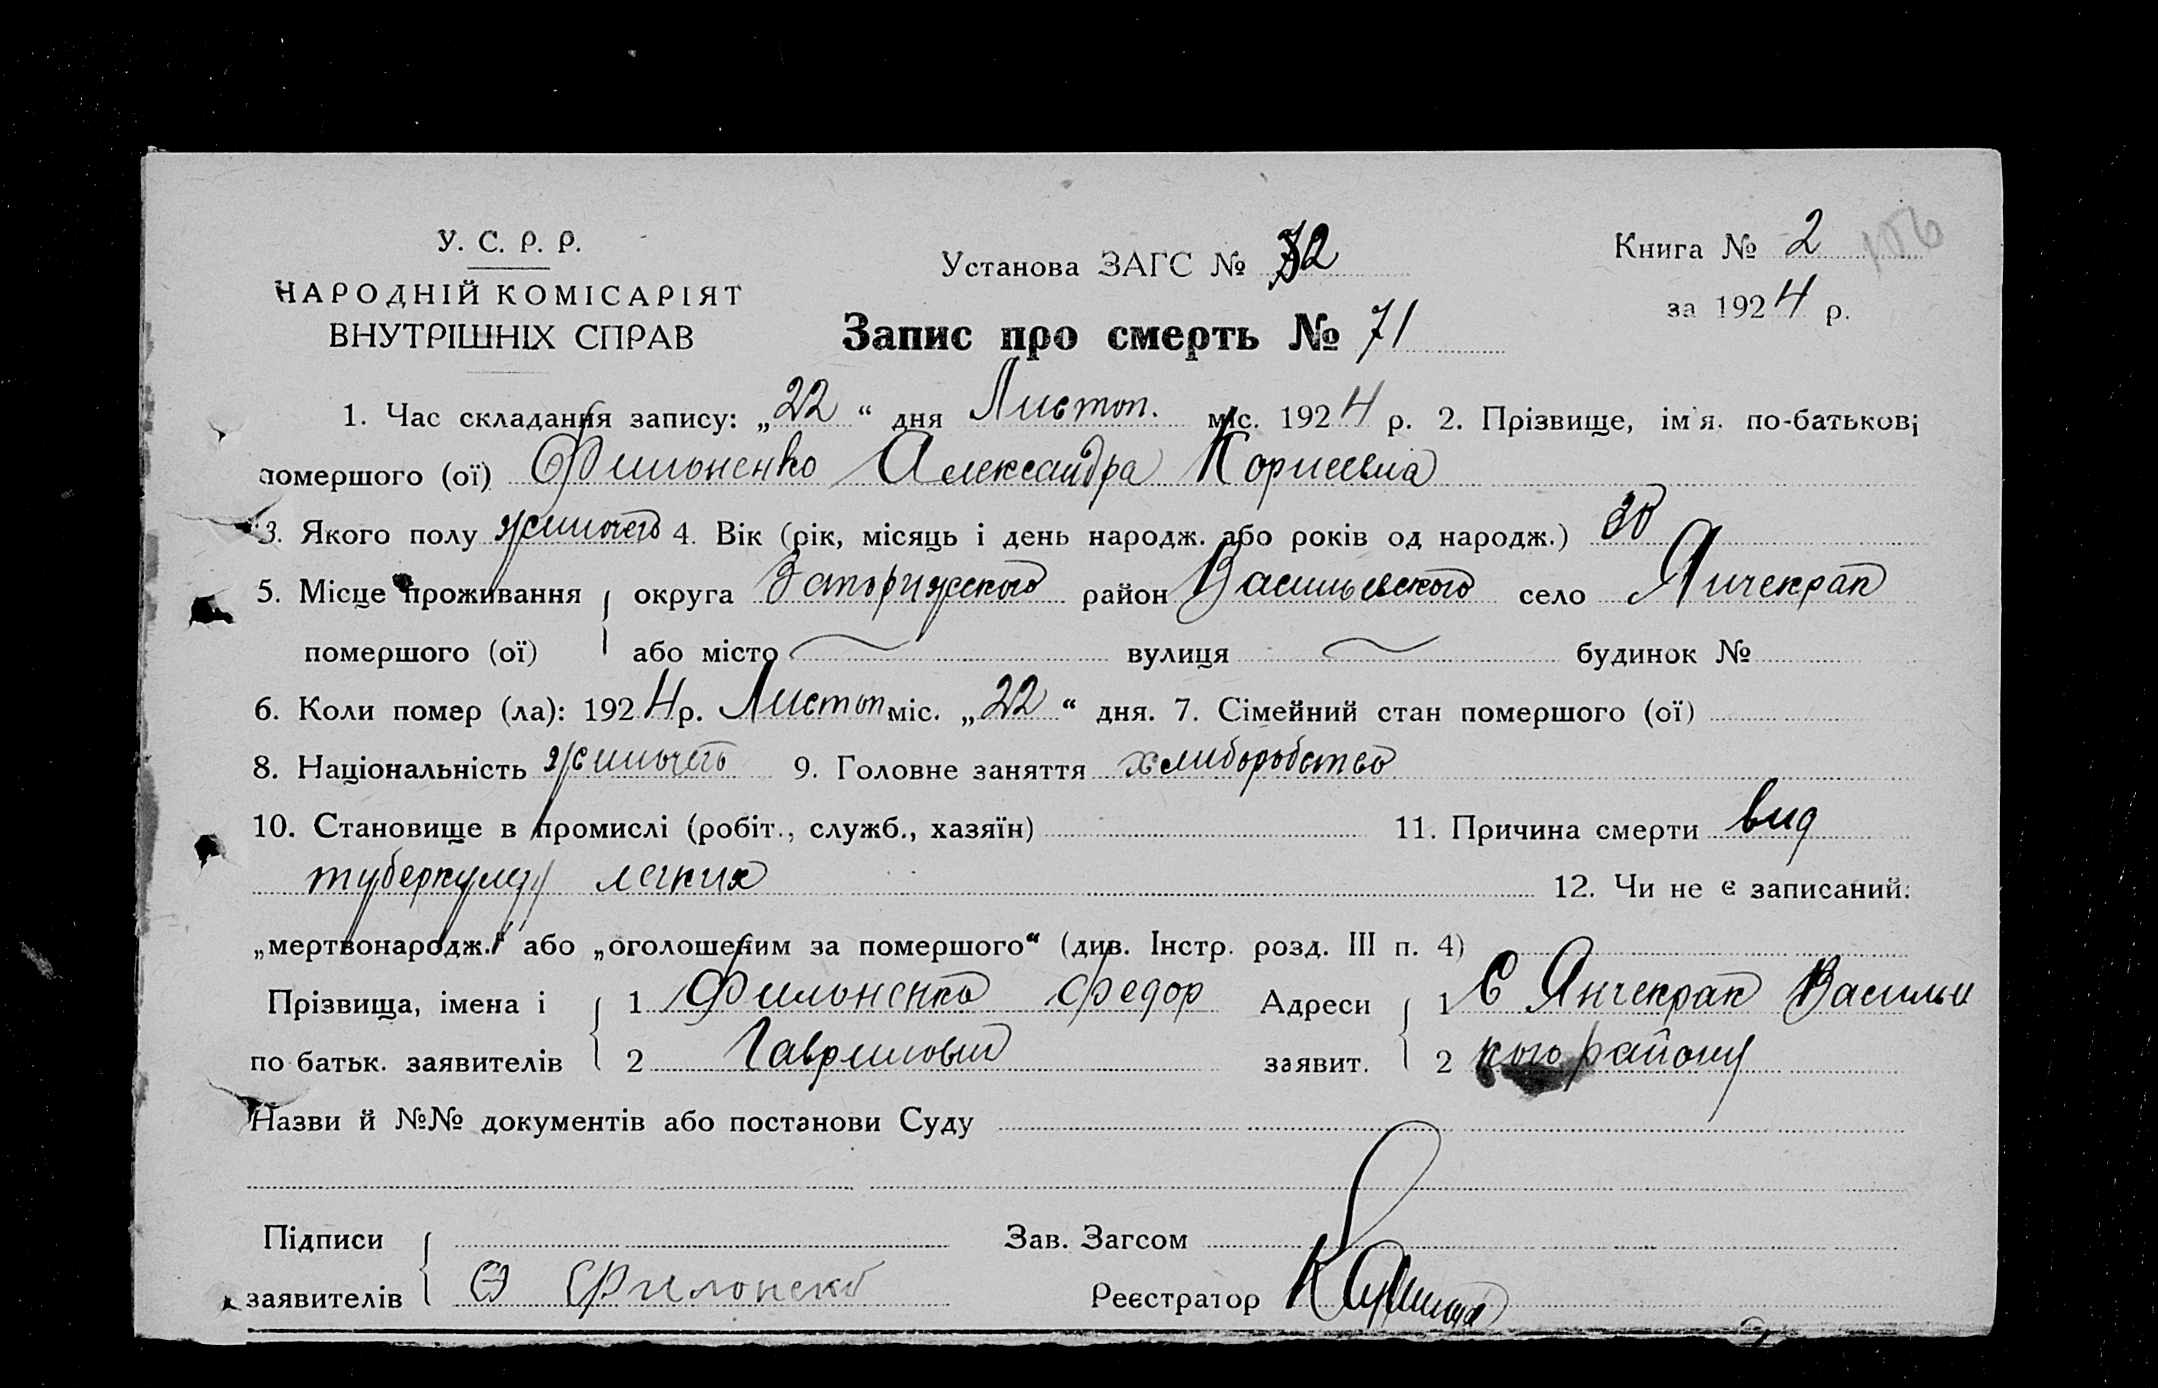 У. С. Р. Р.
НАРОДНІЙ КОМІСАРІЯТ
ВНУТРІШНІХ СПРАВ
Установа ЗАГС № 32
Книга № 2 156
за 1924 р.
Запис про смерть № 71
1. Час складання запису: „22“ дня Листоп. міс. 1924 р. 2. Прізвище, ім'я. по-батькові
помершого (ої) Фильоненко Александра Корнеевна
3. Якого полу жиночего 4. Вік (рік, місяць і день народж. або років од народж.) 30
5. Місце проживання округа Запорижского район Васильевского село Янчекрак
помершого (ої) або місто вулиця будинок №
6. Коли помер (ла): 1924 р. Листоп міс. „22“ дня. 7. Сімейний стан помершого (ої)
8. Національність жиночего 9. Головне заняття хлиборобство
10. Становище в промислі (робіт., служб., хазяїн) 11. Причина смерти вид
туберкулезу легких 12. Чи не є записаний:
„мертвонародж.“ або „оголошеним за помершого“ (див. Інстр. розд. III п. 4)
Прізвища, імена і 1 Фильоненко Федор Адреси 1 С Янчекрак Васильи
по батьк. заявителів 2 Гаврилович заявит. 2 кого району
Назви й №№ документів або постанови Суду
Підписи Зав. Загсом
заявителів Ф Филонекο Реєстратор